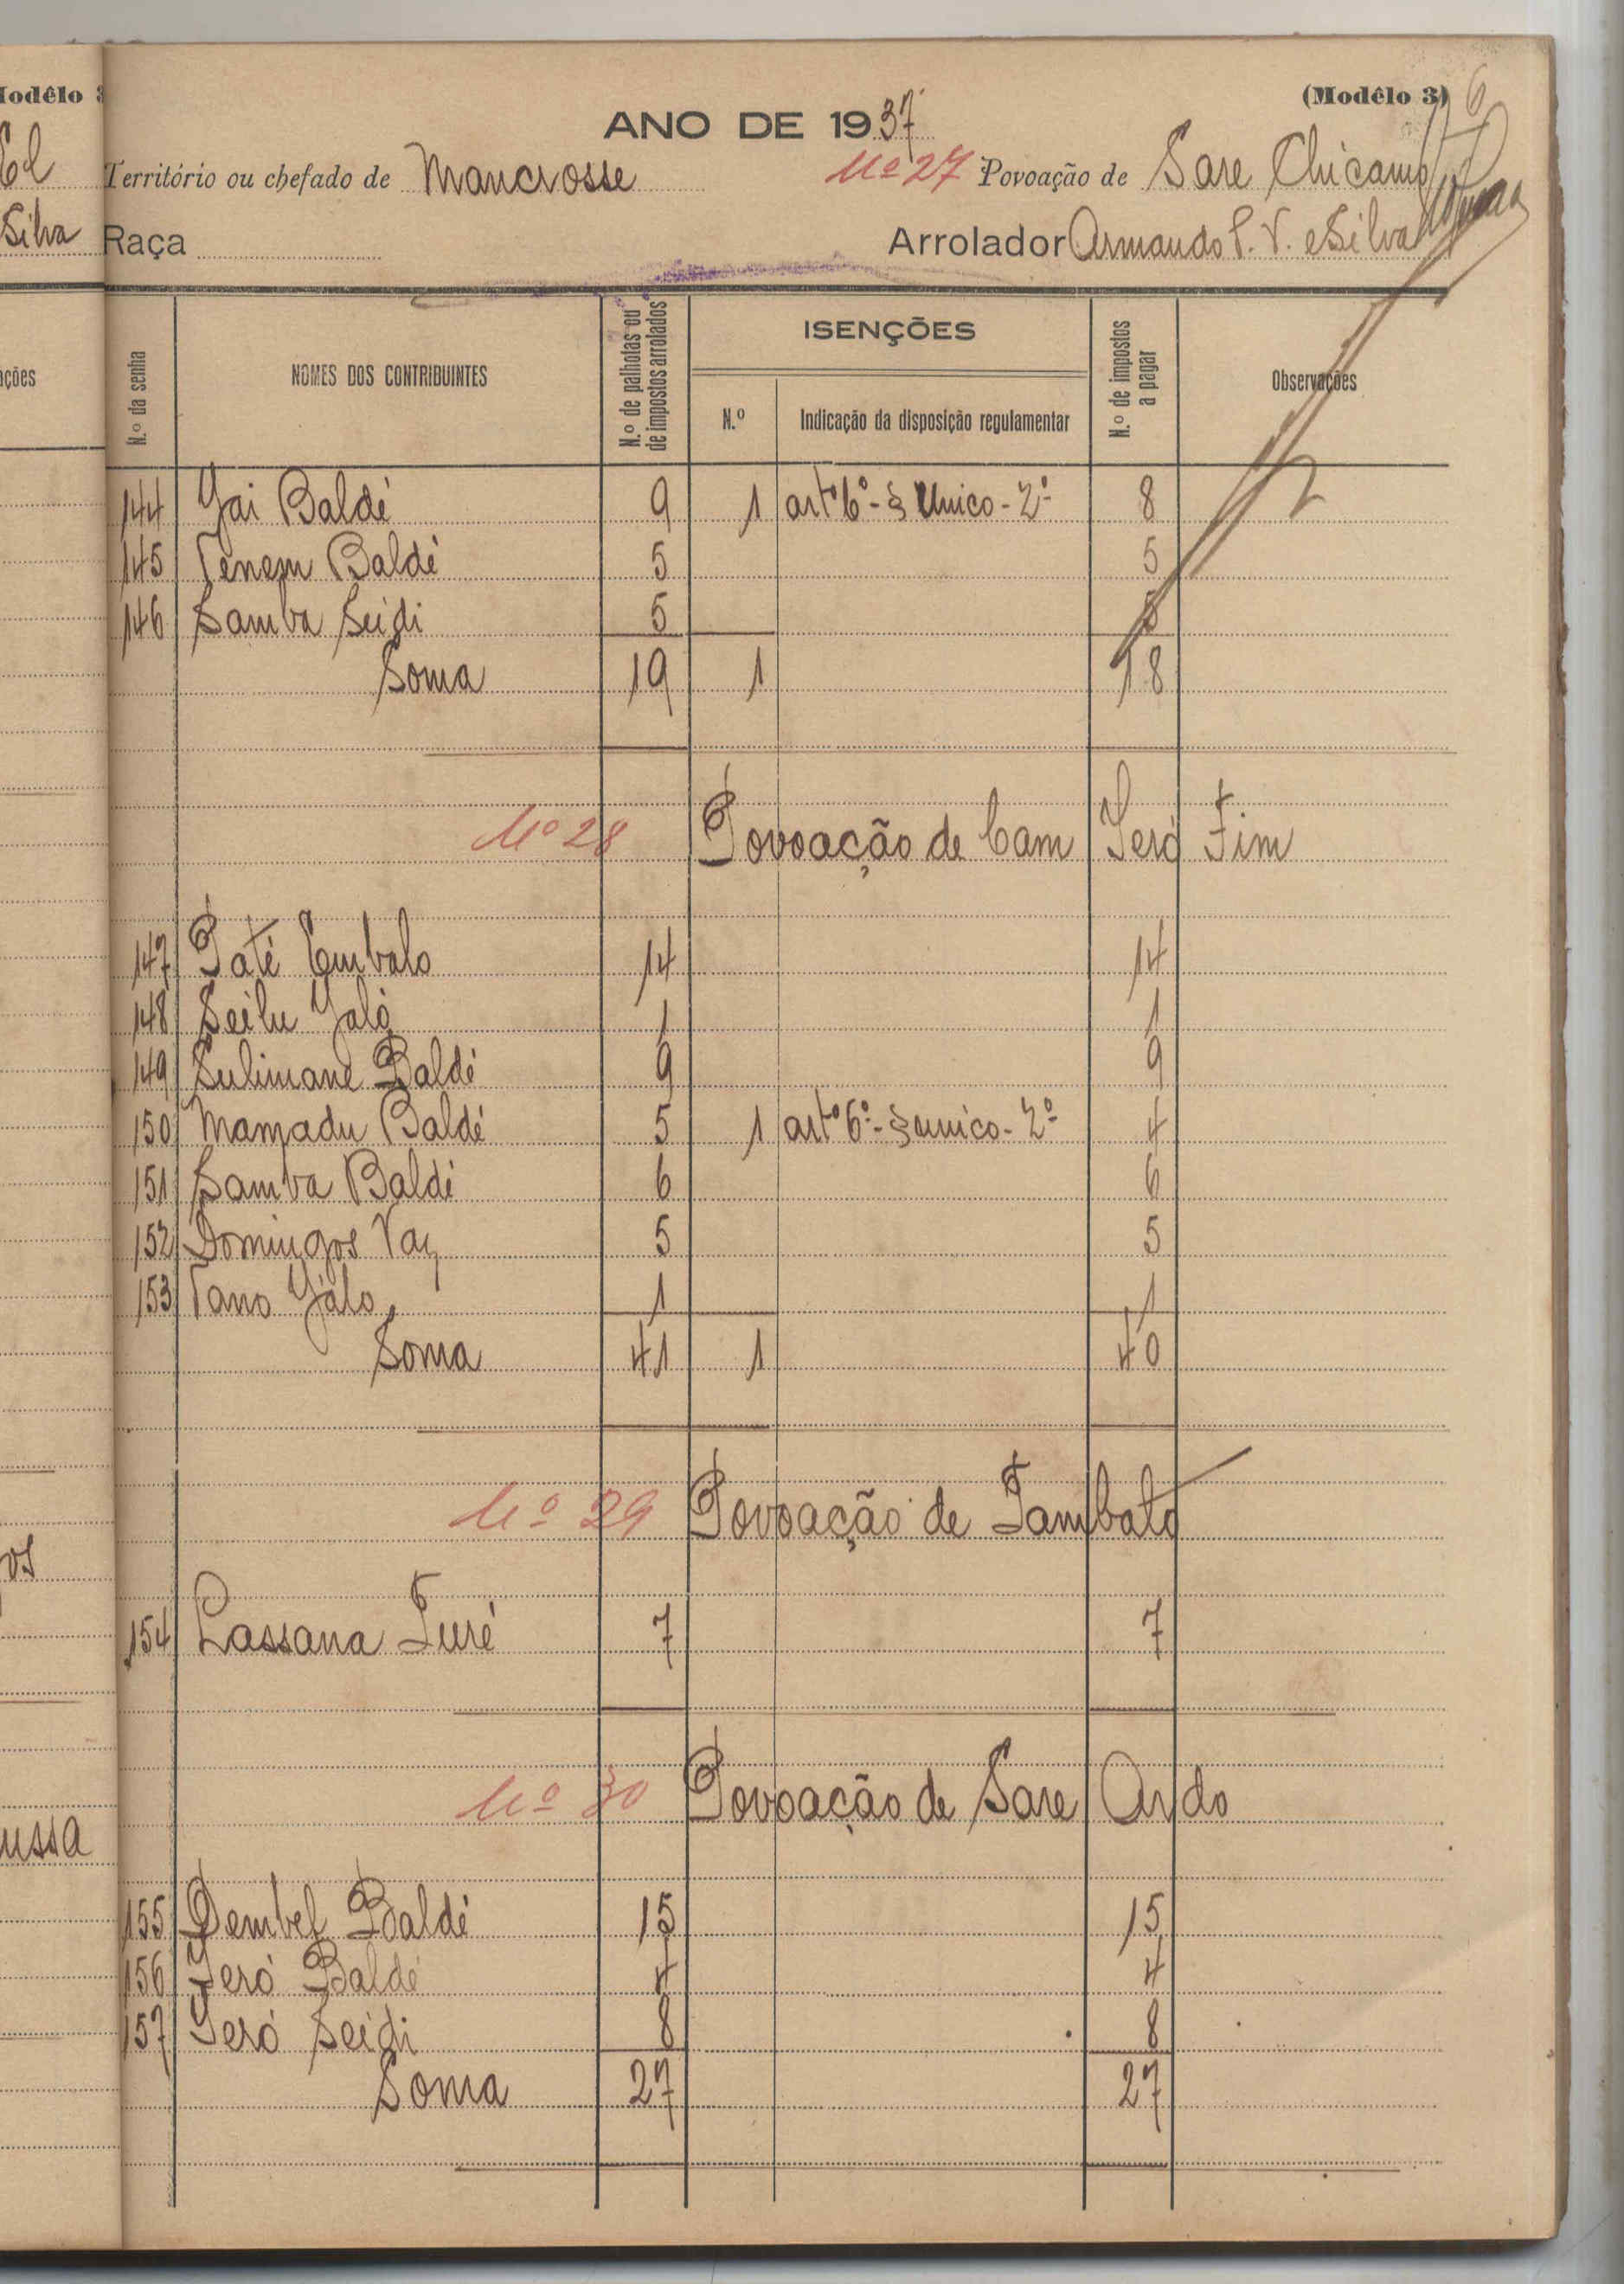 (Modêlo 3) 6
ANO DE 1937
Território ou chefado de Mancrosse Nº 27 Povoação de Sare Chicamo
Raça Arrolador Armando P. V. e Silva
N.º da senha NOMES DOS CONTRIBUINTES N.º de palhotas ou de impostos arrolados ISENÇÕES N.º Indicação da disposição regulamentar N.º de impostos a pagar Observações
144 Jai Baldé 9 1 artº 6º - § Unico - 2º 8
145 Tenem Baldé 5 5
146 Samba Seidi 5 5
Soma 19 1 18
Nº 28 Povoação de Cam Jeró Fim
147 Paté Embalo 14 14
148 Seilu Jaló 1 1
149 Sulimane Baldé 9 9
150 Mamadu Baldé 5 1 artº 6º - § unico - 2º 4
151 Samba Baldé 6 6
152 Domingos Vaz 5 5
153 Tano Jalo 1 1
Soma 41 1 40
Nº 29 Povoação de Tambató
154 Lassana Turé 7 7
Nº 30 Povoação de Sare Ardo
155 Dembel Baldé 15 15
156 Jeró Baldé 4 4
157 Jeró Seidi 8 8
Soma 27 27
Modêlo 3
El
Silva
ações
os
ussa